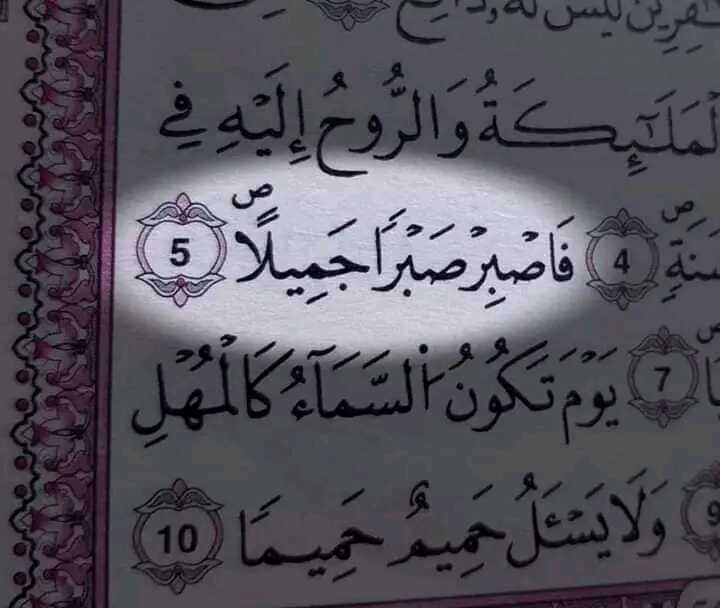 ـفرين ليس له دافع
لملئكة والروح إليه في
سنة 4 فَاصْبِرْ صَبْرًا جَمِيلًا ۖ 5
7 يَوْمَ تَكُونُ السَّمَآءُ كَالْمُهْلِ
9 وَلَا يَسْـَٔلُ حَمِيمٌ حَمِيمًا 10